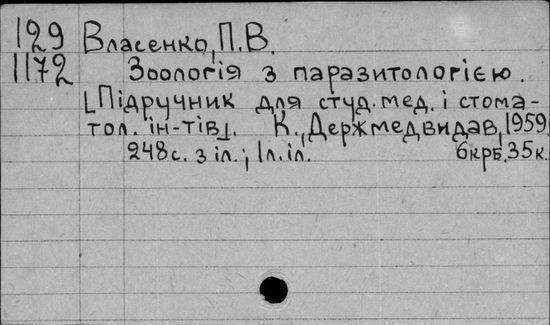 129 Власенко, П.В.
1172 Зоологія з паразитологією.
[Підручник для студ. мед. і стома-
тол. ін-тів]. К., Держмедвидав, 1959
248с. з іл.; 1л. іл. 6крб. 35к.